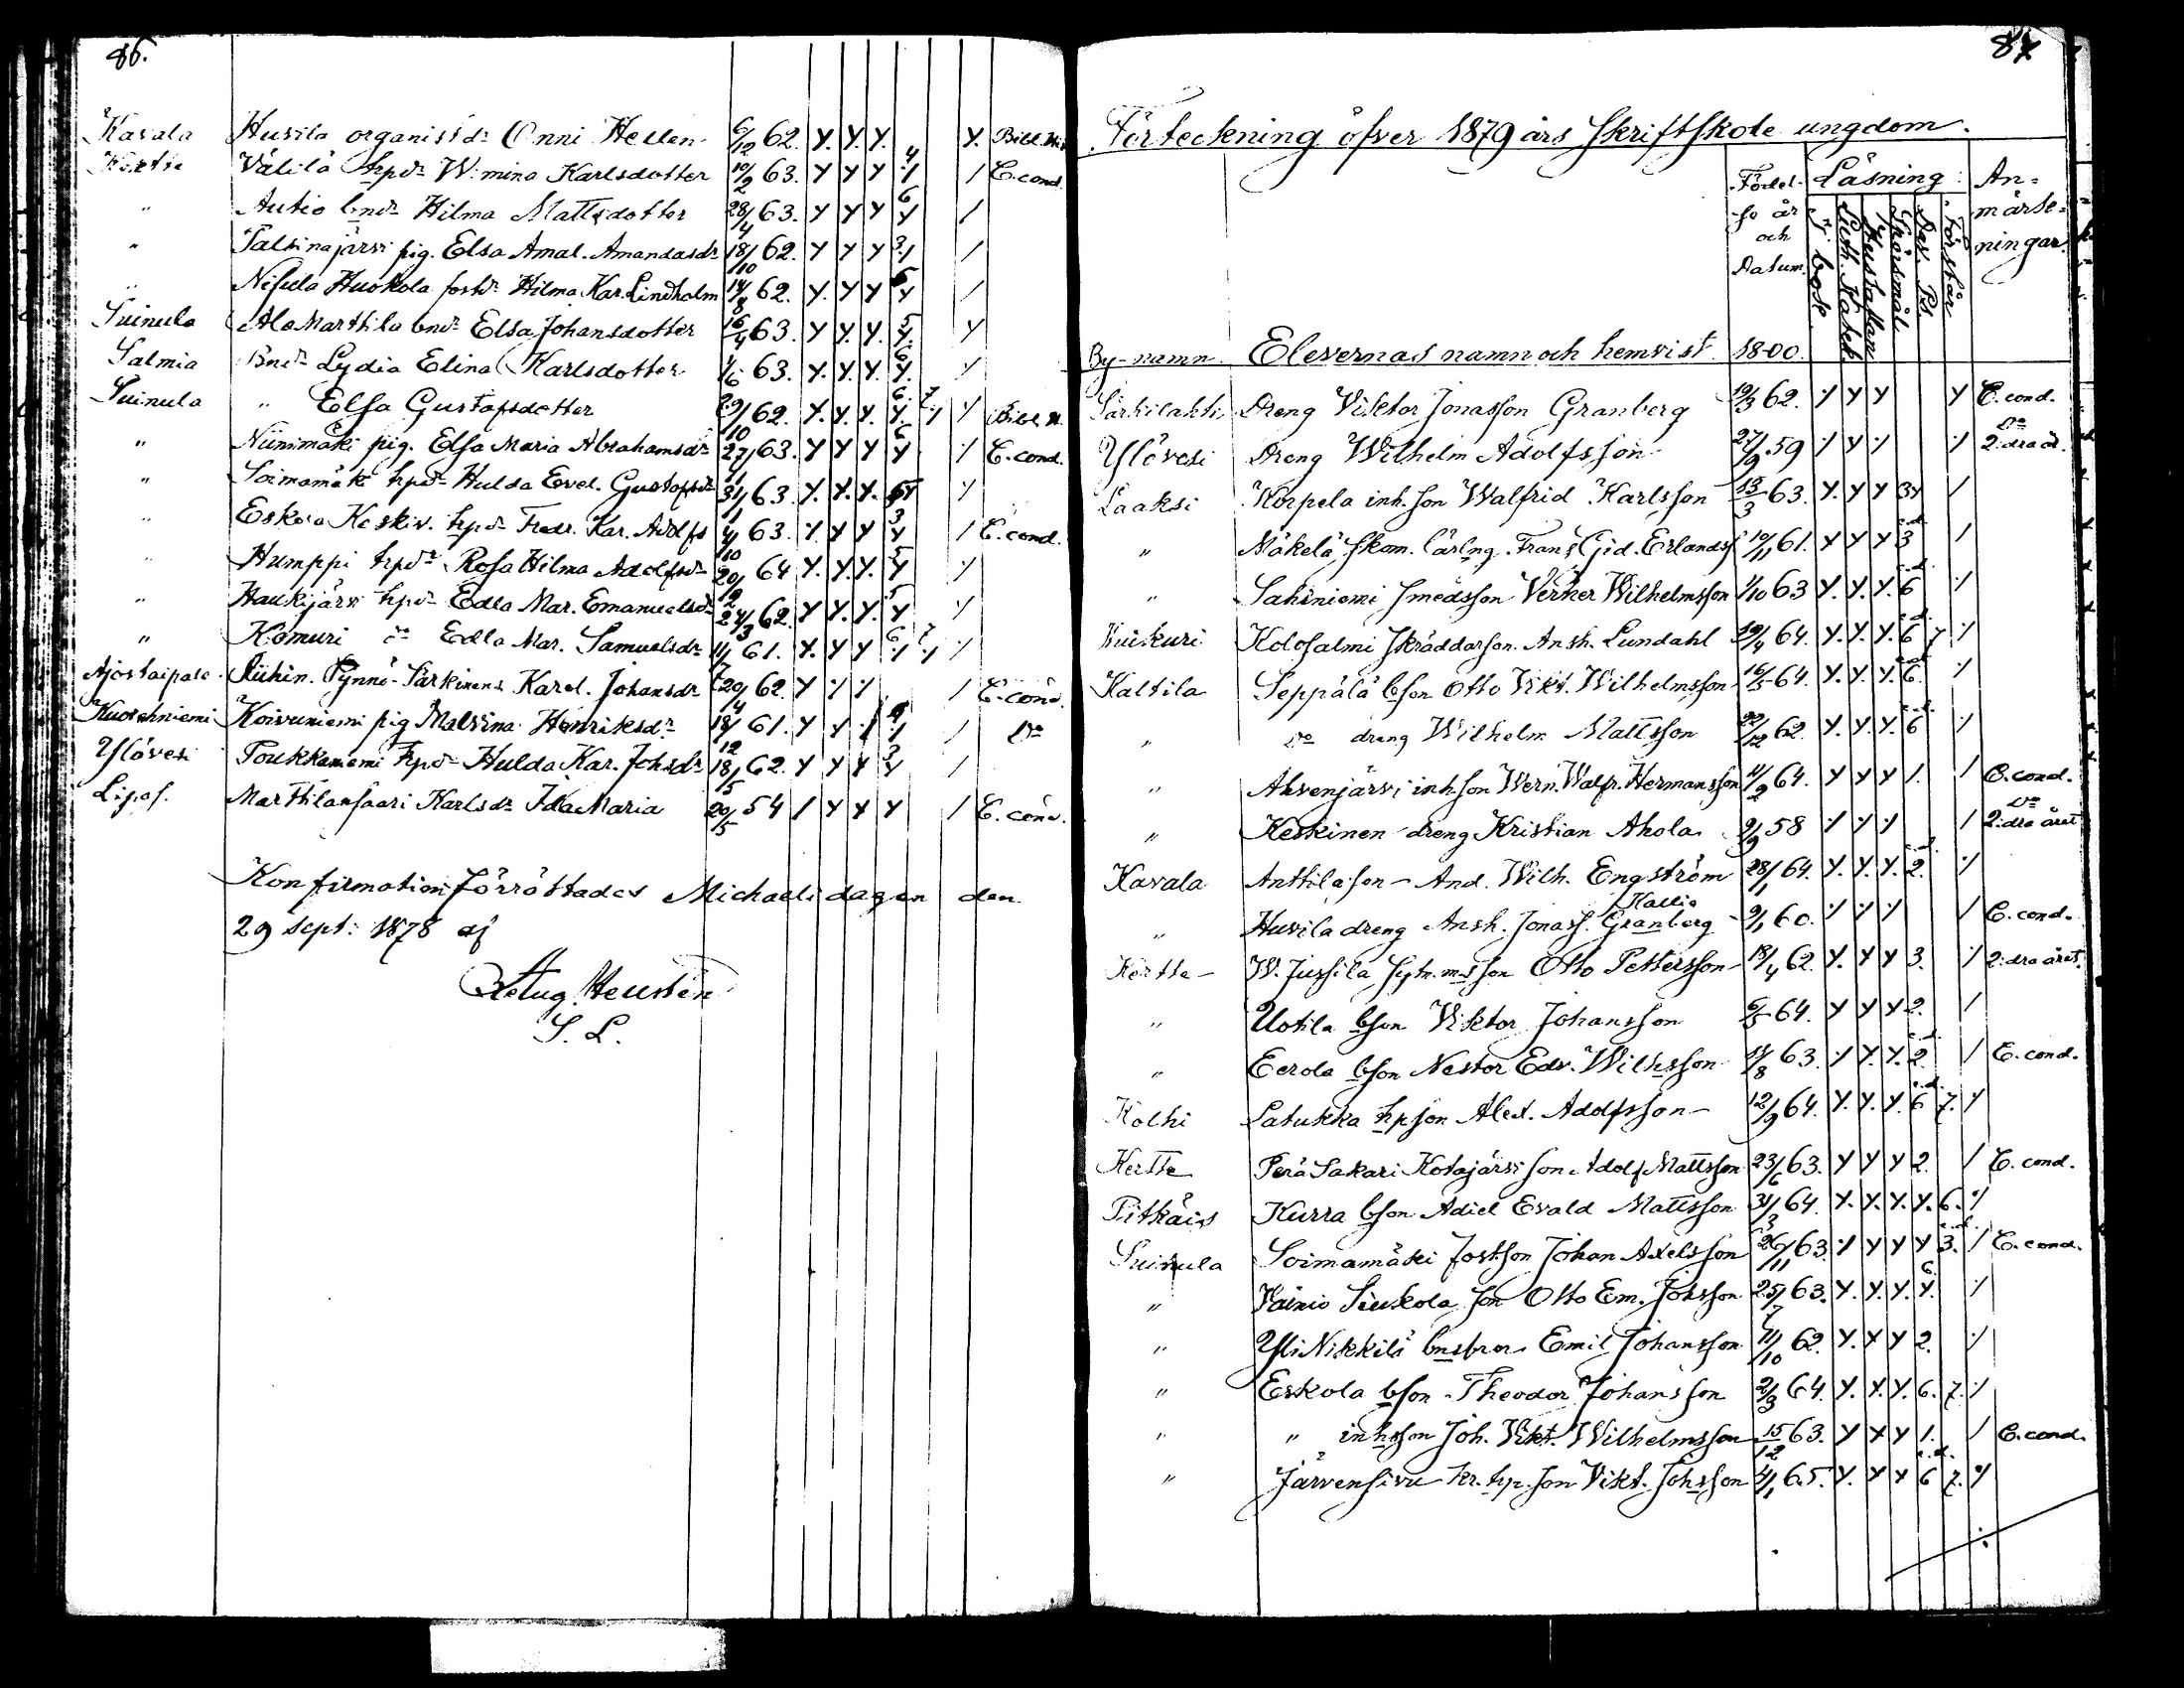 86.
Kavala Huvila organist dr Onni Hellen 6/12 62. Y. Y. Y. Y. Bibl. Hist
Kertte Välilä hpdr W:mina Karlsdotter 10/2 63. Y Y Y 4 / E. cond.
" Autio bndr Hilma Mattsdotter 28/4 63. Y Y Y 6 Y /
" Palsinajärvi pig. Elsa Amal. Amandasdr 18/10 62. Y Y Y 3 /
" Huokola fostdr Hilma Kar. Lindholm 14/8 62. Y. Y Y Y /
Suinula Ala Marttila bndr Elsa Johansdotter 16/4 63. Y Y. Y. 5 Y. Y
Salmia Bndr Lydia Elina Karlsdotter 1/6 63. Y. Y. Y. 6 Y. Y
Suinula " Elsa Gustafsdotter 29/10 62. Y. Y. Y. 6 Y. 7 Y Bibl. H.
" Niinimäki pig. Elsa Maria Abrahamsdr 27/11 63. Y Y Y 6 Y / E. cond.
" Soimamäki hpdr Hulda Evel. Gustafsdr 31/1 63. Y. Y. Y. Y
" Eskola Keskiv. hpdr Fredr. Kar. Adolfs 4/10 63. Y. Y Y 3 Y / E. cond.
" Humppi hpdr Rosa Hilma Adolfsdr 20/12 64 Y. Y. Y. 5 Y Y
" Haukijärvi hpdr Edla Mar. Emanuelsdr 24/3 62. Y Y. Y. 5 Y Y
" Komuri do Edla Mar. Samuelsdr 61. Y. Y Y 6 7
Ajostaipale Pynnö-Särkinens Karol. Johansdr 20/4 62. Y / E. cond.
Kuorehniemi Koivuniemi pig Malvina Henriksdr 18/12 61. Y / Do
Ylövesi Poukkaniemi hpdr Hulda Kar. Johsdr 18/5 62. Y Y Y 3 Y /
Lipos. Marttilansaari Karlsdr Ida Maria 20/5 54 / Y Y Y / E. cond.
Konfirmation förrättades Michaeli dagen den
29 Sept: 1878 af
Aug. Heusten
S. L.
87.
Förteckning öfver 1879 års Skriftskole ungdom.
Födel-se år och Datum. Läsning: An-märk-ningar.
I bok Luth. Katek Hustaflan Spörsmål Dav. Ps. Förstår
By-namn. Elevernas namn och hemvist. 18-00.
Särkilahti Dreng Viktor Jonasson Granberg 19/3 62. Y Y Y Y E. cond.
Ylövesi Dreng Wilhelm Adolfsson 27/9 59 Do 2:dra år.
Laaksi Korpela inh. son Walfrid Karlsson 13/3 63. Y. Y Y 3 Y /
" Mäkelä skom. lärlng. Frans Gid. Erlandss 10/11 61. Y Y Y 3 /
" Sahiniemi smedsson Verner Wilhelmsson 1/10 63 Y. Y. Y. 6
Kuikuri Kolosalmi skräddarson. Ansh. Lundahl 19/4 64. Y. Y. Y. 6 7
Kaltila Seppälä bson Otto Vikt. Wilhelmsson 16/5 64. Y. Y. Y. 6.
" Do dreng Wilhelm Mattsson 22/12 62 Y. Y. Y. 6
" Ahvenjärvi inhson Wern. Walfr. Hermansson 4/2 64. Y Y Y 1. / E. cond.
" Keskinen dreng Kristian Ahola 2/9 58 / Do 2:dra året
Kavala Anttila son And. Wilh. Engström 28/1 64. Y. Y. Y. 2.
Kallio
" Huvila dreng Ansh. Jonass. Granberg 9/1 60. / E. cond.
Kertte W. Jussila Sytn.msson Otto Pettersson 18/4 62. Y. Y Y 3. 2:dra året.
" Uotila bson Viktor Johansson 6/5 64. Y Y Y 2. /
" Eerola bson Nestor Edv. Wilhsson 11/8 63. Y. Y. 2 / E. cond.
Kolhi Latukka hpson Alex. Adolfsson 12/9 64. Y. Y. Y. 6 7. Y
Kertte Perä Sakari Kotajärvi son. Adolf Mattsson 23/6 63. Y Y Y 2. / E. cond.
Pitkäis Kurra bson Adiel Evald Mattsson 31/3 64. Y. Y. Y. Y. 6.
Suinula Soimamäki fostson Johan Axelsson 26/11 63. Y Y Y 3. / E. cond.
" Vainio Siukola son Otto Em. Johsson 25/7 63. Y. Y. Y. 6 Y.
" Yli Nikkilä bnsbror Emil Johansson 11/10 62. Y. Y Y 2.
" Eskola bson Theodor Johansson 2/3 64. Y. Y. Y. 6. 7.
" " inhson Joh. Vikt. Wilhelmsson 15/12 63. Y Y Y 1. / E. cond.
" Järvensivu kr. hp. son Vikt. Johsson 4/1 65. Y. Y Y 6 7.